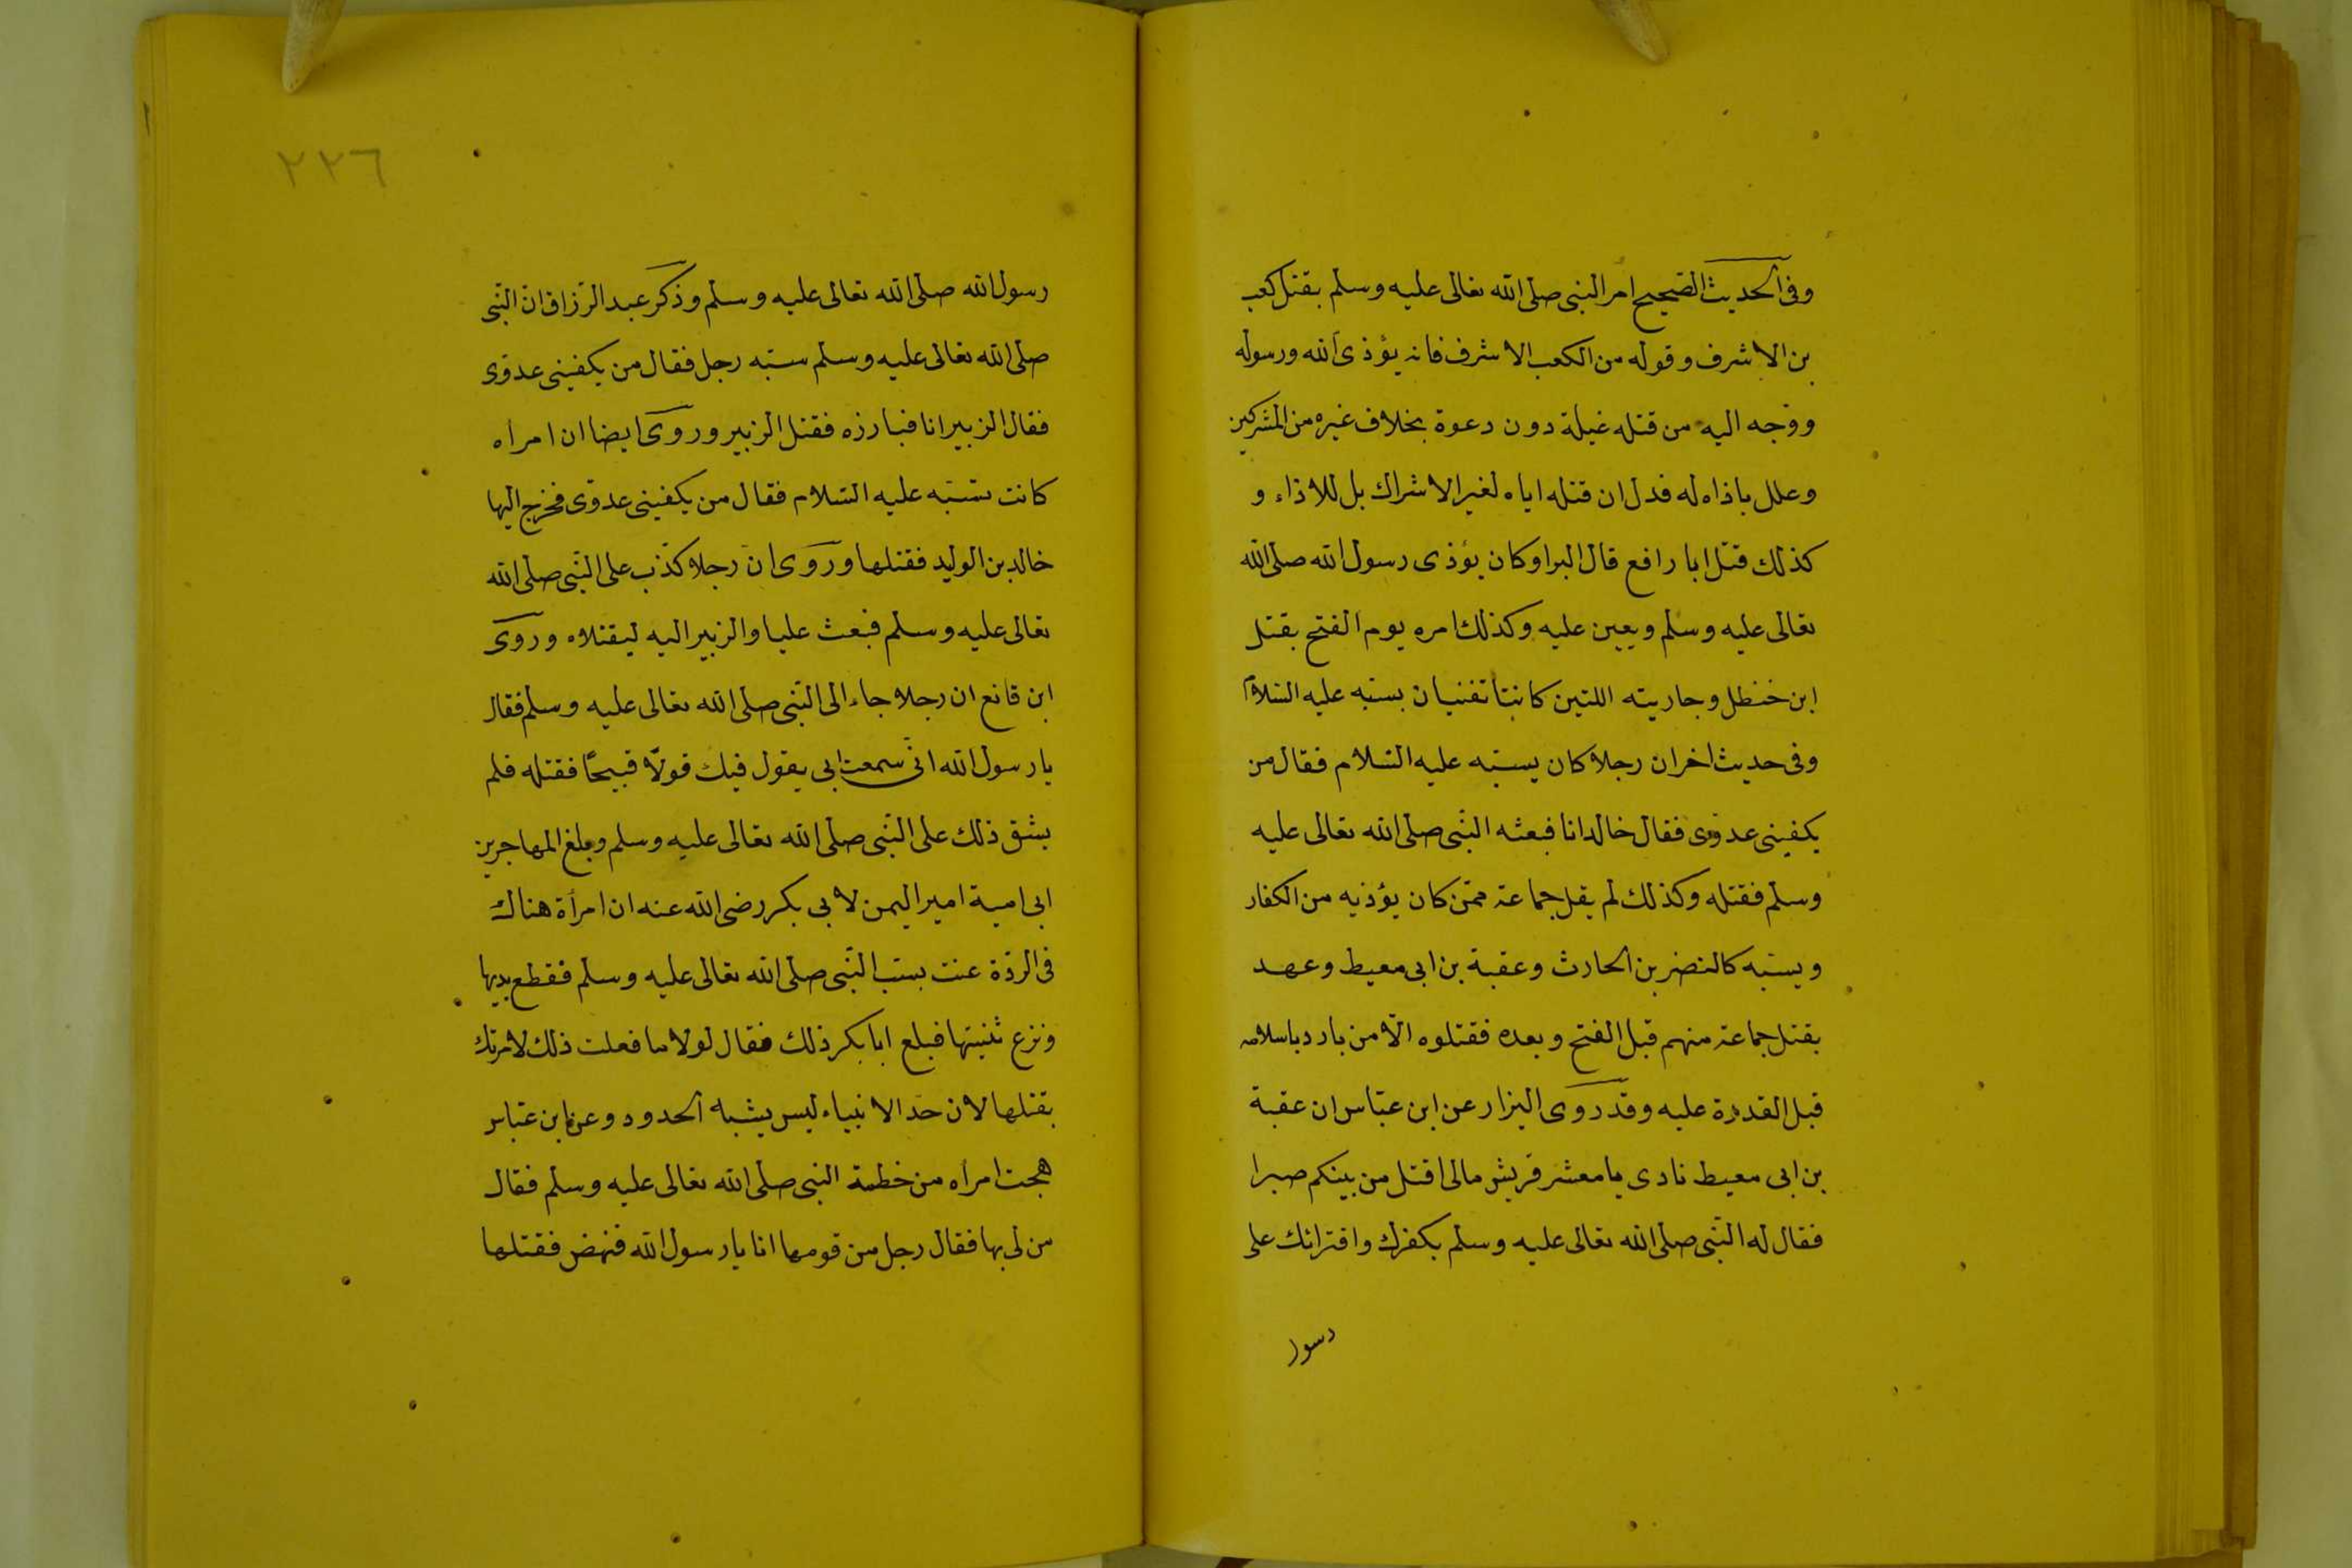 وفى الحديث الصحيح امر النبى صلى الله تعالى عليه وسلم بقتل كعب
بن الاشرف وقوله من الكعب الاشرف فانه يؤذى الله ورسوله
ووجه اليه من قتله غيلة دون دعوة بخلاف غيره من المشركين
وعلل باذاه له فدل ان قتله اياه لغير الاشراك بل للاذاء و
كذلك قتل ابا رافع قال البرا وكان يؤذى رسول الله صلى الله
تعالى عليه وسلم ويعين عليه وكذلك امره يوم الفتح بقتل
ابن خنطل وجاريته اللتين كانتا تغنيان بسبه عليه السلام
وفى حديث اخر ان رجلا كان يسبه عليه السلام فقال من
يكفينى عدوى فقال خالد انا فبعثه النبى صلى الله تعالى عليه
وسلم فقتله وكذلك لم يقل جماعة ممن كان يؤذيه من الكفار
ويسبه كالنضر بن الحارث وعقبة بن ابى معيط وعهد
بقتل جماعة منهم قبل الفتح وبعده فقتلوه الا من بادر باسلامه
قبل القدرة عليه وقد روى البزار عن ابن عباس ان عقبة
بن ابى معيط نادى يا معشر قريش مالى اقتل من بينكم صبرا
فقال له النبى صلى الله تعالى عليه وسلم بكفرك وافترائك على
رسول
٢٢٦
رسول الله صلى الله تعالى عليه وسلم وذكر عبد الرزاق ان النبى
صلى الله تعالى عليه وسلم سبه رجل فقال من يكفينى عدوى
فقال الزبير انا فبارزه فقتل الزبير وروى ايضا ان امراه
كانت تسبه عليه السلام فقال من يكفينى عدوى فخرج اليها
خالد بن الوليد فقتلها وروى ان رجلا كذب على النبى صلى الله
تعالى عليه وسلم فبعث عليا والزبير اليه ليقتلاه وروى
ابن قانع ان رجلا جاء الى النبى صلى الله تعالى عليه وسلم فقال
يا رسول الله انى سمعت ابى يقول فيك قولا قبيحا فقتله فلم
يشق ذلك على النبى صلى الله تعالى عليه وسلم وبلغ المهاجر بن
ابى امية امير اليمن لابى بكر رضى الله عنه ان امرأة هناك
فى الردة غنت بسب النبى صلى الله تعالى عليه وسلم فقطع يديها
ونزع ثنيتها فبلغ ابا بكر ذلك فقال لولا ما فعلت ذلك لامرتك
بقتلها لان حد الانبياء ليس يشبه الحدود وعن ابن عباس
هجت امراه من خطمة النبى صلى الله تعالى عليه وسلم فقال
من لى بها فقال رجل من قومها انا يا رسول الله فنهض فقتلها